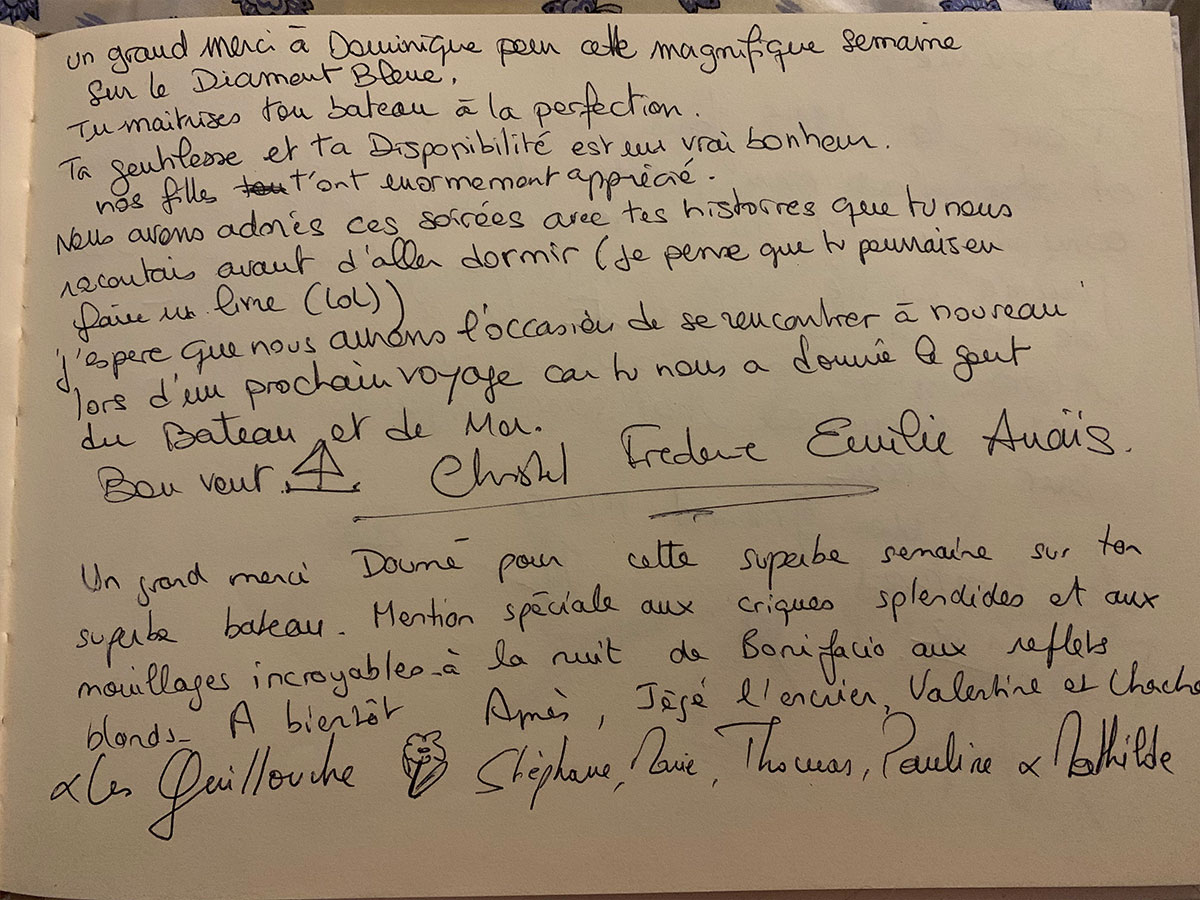 un grand merci à Dominique pour cette magnifique semaine
sur le Diamant Bleue.
Tu maitrises ton bateau à la perfection.
Ta gentilesse et ta Disponibilité est un vrai bonheur.
nos filles t'ont enormement apprécié.
Nous avons adorés ces soirées avec tes histoires que tu nous
racontais avant d'aller dormir (Je pense que tu pourrais en
faire un livre (LOL))
j'espere que nous aurons l'occasion de se rencontrer à nouveau
lors d'un prochain voyage car tu nous a donné le gout
du Bateau et de Mer.
Bon vent. Christel Frederic Emilie Anaïs.
Un grand merci Doumé pour cette superbe semaine sur ton
superbe bateau. Mention spéciale aux criques splendides et aux
mouillages incroyables - à la nuit de Bonifacio aux reflets
blonds - A bientôt Agnès, Jégé l'encrier, Valentine et Chacha
& Les Guillouche Stéphane, Marie, Thomas, Pauline & Mathilde